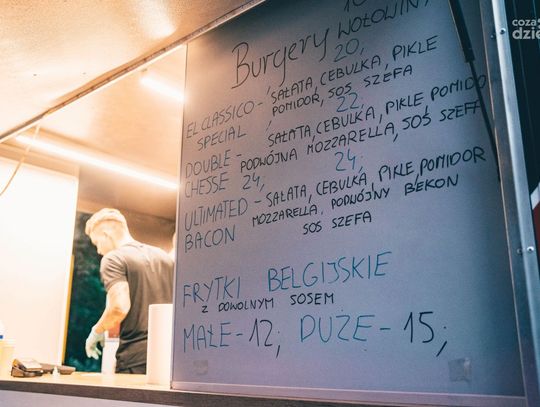 Burgery WOŁOWIN
20,
EL CLASSICO - SAŁATA, CEBULKA, PIKLE
SPECIAL POMIDOR, SOS SZEFA
22,
DOUBLE - SAŁATA, CEBULKA, PIKLE, POMIDO
CHESSE 24, PODWÓJNA MOZZARELLA, SOS SZEF
24,
ULTIMATED - SAŁATA, CEBULKA, PIKLE, POMIDOR
BACON MOZZARELLA, PODWÓJNY BEKON
SOS SZEFA
FRYTKI BELGIJSKIE
Z DOWOLNYM SOSEM
MAŁE - 12; DUŻE - 15,
coza
dzie